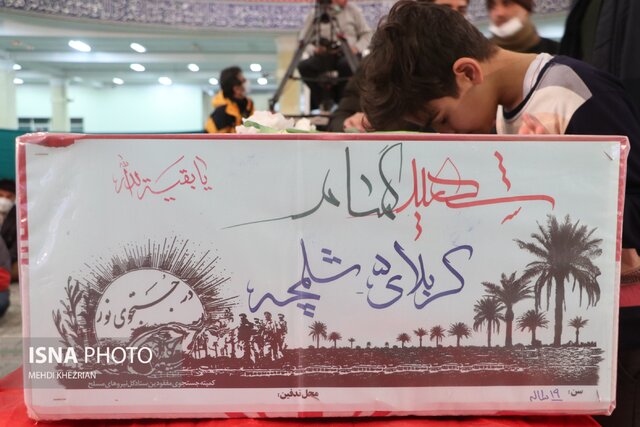 یا بقیة الله
شهید گمنام
کربلای شلمچه
در جستجوی نور
کمیته جستجوی مفقودین ستادکل نیروهای مسلح
محل تدفین:
سن: ۱۹ ساله
ISNA PHOTO
MEHDI KHEZRIAN